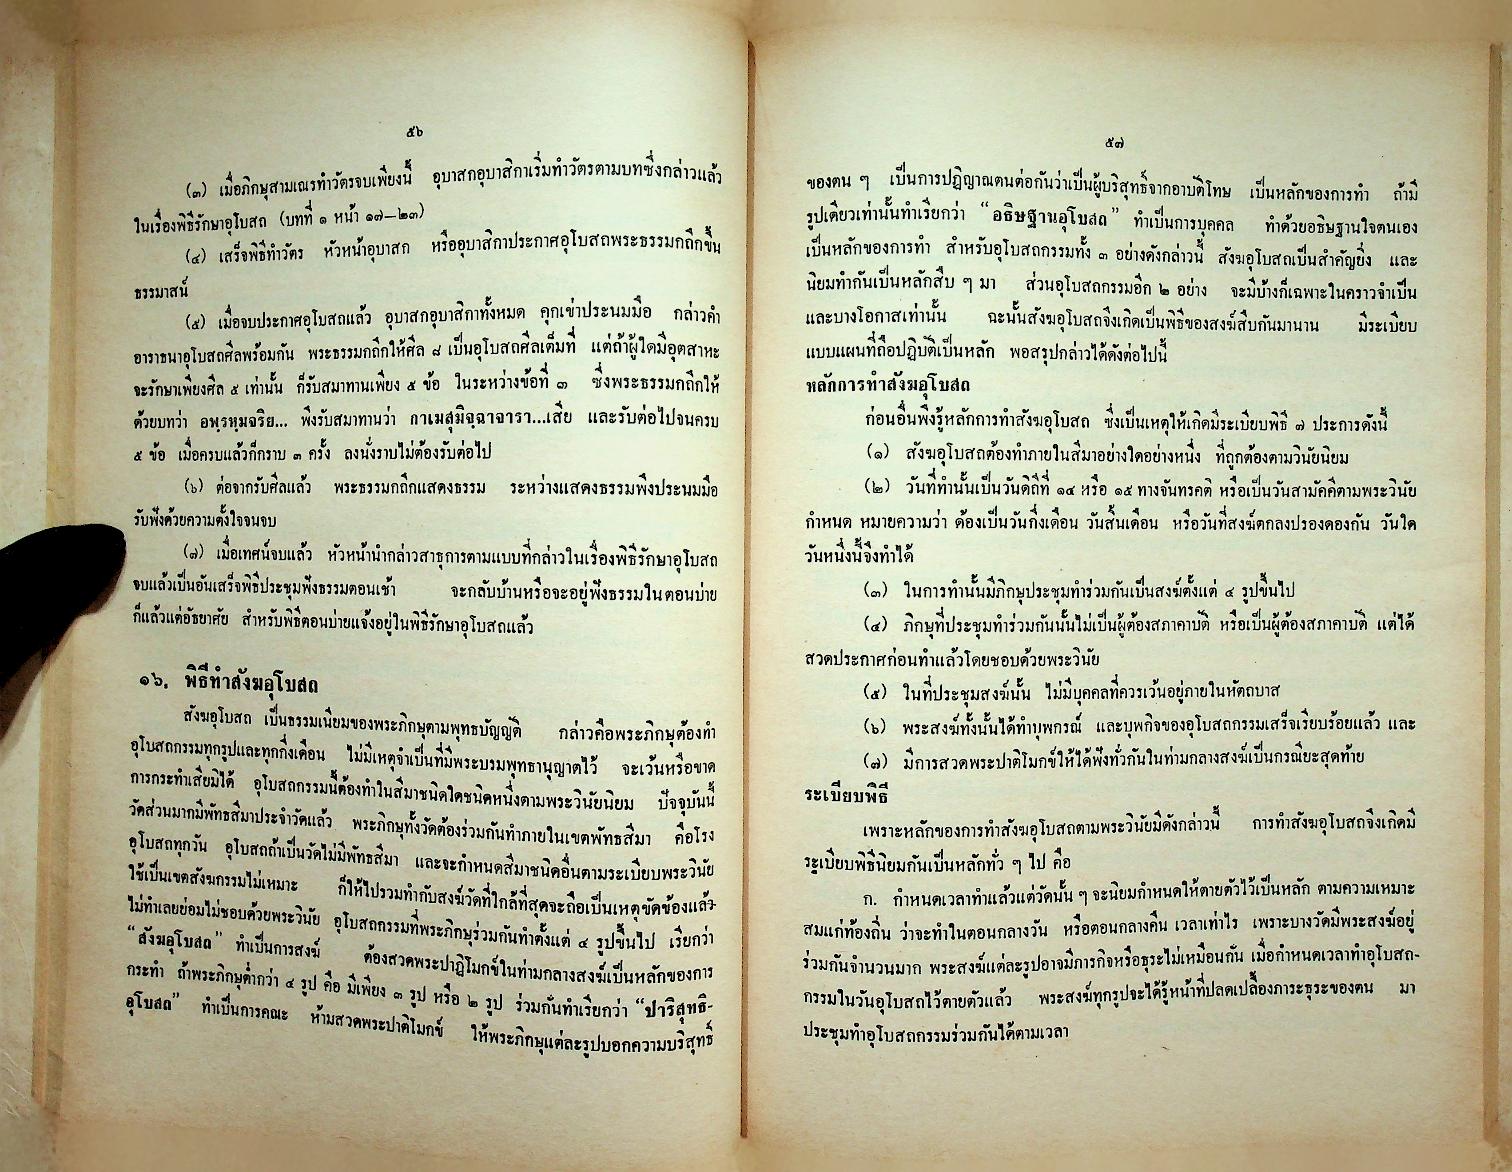 ๕๖
(๓) เมื่อภิกษุสามเณรทำวัตรจบเพียงนี้ อุบาสกอุบาสิกาเริ่มทำวัตรตามบทซึ่งกล่าวแล้ว
ในเรื่องพิธีรักษาอุโบสถ (บทที่ ๑ หน้า ๑๗–๒๓)
(๔) เสร็จพิธีทำวัตร หัวหน้าอุบาสก หรืออุบาสิกาประกาศอุโบสถพระธรรมกถึกขึ้น
ธรรมาสน์
(๕) เมื่อจบประกาศอุโบสถแล้ว อุบาสกอุบาสิกาทั้งหมด คุกเข่าประนมมือ กล่าวคำ
อาราธนาอุโบสถศีลพร้อมกัน พระธรรมกถึกให้ศีล ๘ เป็นอุโบสถศีลเต็มที่ แต่ถ้าผู้ใดมีอุตสาหะ
จะรักษาเพียงศีล ๕ เท่านั้น ก็รับสมาทานเพียง ๕ ข้อ ในระหว่างข้อที่ ๓ ซึ่งพระธรรมกถึกให้
ด้วยบทว่า อพฺรหฺมจริย... พึงรับสมาทานว่า กาเมสุมิจฺฉาจารา...เสีย และรับต่อไปจนครบ
๕ ข้อ เมื่อครบแล้วก็กราบ ๓ ครั้ง ลงนั่งราบไม่ต้องรับต่อไป
(๖) ต่อจากรับศีลแล้ว พระธรรมกถึกแสดงธรรม ระหว่างแสดงธรรมพึงประนมมือ
รับฟังด้วยความตั้งใจจนจบ
(๗) เมื่อเทศน์จบแล้ว หัวหน้านำกล่าวสาธุการตามแบบที่กล่าวในเรื่องพิธีรักษาอุโบสถ
จบแล้วเป็นอันเสร็จพิธีประชุมฟังธรรมตอนเช้า จะกลับบ้านหรือจะอยู่ฟังธรรมในตอนบ่าย
ก็แล้วแต่อัธยาศัย สำหรับพิธีตอนบ่ายแจ้งอยู่ในพิธีรักษาอุโบสถแล้ว
๑๖. พิธีทำสังฆอุโบสถ
สังฆอุโบสถ เป็นธรรมเนียมของพระภิกษุตามพุทธบัญญัติ กล่าวคือพระภิกษุต้องทำ
อุโบสถกรรมทุกรูปและทุกกึ่งเดือน ไม่มีเหตุจำเป็นที่มีพระบรมพุทธานุญาตไว้ จะเว้นหรือขาด
การกระทำเสียมิได้ อุโบสถกรรมนี้ต้องทำในสีมาชนิดใดชนิดหนึ่งตามพระวินัยนิยม ปัจจุบันนี้
วัดส่วนมากมีพัทธสีมาประจำวัดแล้ว พระภิกษุทั้งวัดต้องร่วมกันทำภายในเขตพัทธสีมา คือโรง
อุโบสถทุกวัน อุโบสถถ้าเป็นวัดไม่มีพัทธสีมา และจะกำหนดสีมาชนิดอื่นตามระเบียบพระวินัย
ใช้เป็นเขตสังฆกรรมไม่เหมาะ ก็ให้ไปรวมทำกับสงฆ์วัดที่ใกล้ที่สุดจะถือเป็นเหตุขัดข้องแล้ว
ไม่ทำเลยย่อมไม่ชอบด้วยพระวินัย อุโบสถกรรมที่พระภิกษุร่วมกันทำตั้งแต่ ๔ รูปขึ้นไป เรียกว่า
“สังฆอุโบสถ” ทำเป็นการสงฆ์ ต้องสวดพระปาฏิโมกข์ในท่ามกลางสงฆ์เป็นหลักของการ
กระทำ ถ้าพระภิกษุต่ำกว่า ๔ รูป คือ มีเพียง ๓ รูป หรือ ๒ รูป ร่วมกันทำเรียกว่า “ปาริสุทธิ-
อุโบสถ” ทำเป็นการคณะ ห้ามสวดพระปาติโมกข์ ให้พระภิกษุแต่ละรูปบอกความบริสุทธิ์
๕๗
ของตน ๆ เป็นการปฏิญาณตนต่อกันว่าเป็นผู้บริสุทธิ์จากอาบัติโทษ เป็นหลักของการทำ ถ้ามี
รูปเดียวเท่านั้นทำเรียกว่า “อธิษฐานอุโบสถ” ทำเป็นการบุคคล ทำด้วยอธิษฐานใจตนเอง
เป็นหลักของการทำ สำหรับอุโบสถกรรมทั้ง ๓ อย่างดังกล่าวนี้ สังฆอุโบสถเป็นสำคัญยิ่ง และ
นิยมทำกันเป็นหลักสืบ ๆ มา ส่วนอุโบสถกรรมอีก ๒ อย่าง จะมีบ้างก็เฉพาะในคราวจำเป็น
และบางโอกาสเท่านั้น ฉะนั้นสังฆอุโบสถจึงเกิดเป็นพิธีของสงฆ์สืบกันมานาน มีระเบียบ
แบบแผนที่ถือปฏิบัติเป็นหลัก พอสรุปกล่าวได้ดังต่อไปนี้
หลักการทำสังฆอุโบสถ
ก่อนอื่นพึงรู้หลักการทำสังฆอุโบสถ ซึ่งเป็นเหตุให้เกิดมีระเบียบพิธี ๗ ประการดังนี้
(๑) สังฆอุโบสถต้องทำภายในสีมาอย่างใดอย่างหนึ่ง ที่ถูกต้องตามวินัยนิยม
(๒) วันที่ทำนั้นเป็นวันดิถีที่ ๑๔ หรือ ๑๕ ทางจันทรคติ หรือเป็นวันสามัคคีตามพระวินัย
กำหนด หมายความว่า ต้องเป็นวันกึ่งเดือน วันสิ้นเดือน หรือวันที่สงฆ์ตกลงปรองดองกัน วันใด
วันหนึ่งนี้จึงทำได้
(๓) ในการทำนั้นมีภิกษุประชุมทำร่วมกันเป็นสงฆ์ตั้งแต่ ๔ รูปขึ้นไป
(๔) ภิกษุที่ประชุมทำร่วมกันนั้นไม่เป็นผู้ต้องสภาคาบัติ หรือเป็นผู้ต้องสภาคาบัติ แต่ได้
สวดประกาศก่อนทำแล้วโดยชอบด้วยพระวินัย
(๕) ในที่ประชุมสงฆ์นั้น ไม่มีบุคคลที่ควรเว้นอยู่ภายในหัตถบาส
(๖) พระสงฆ์ทั้งนั้นได้ทำบุพกรณ์ และบุพกิจของอุโบสถกรรมเสร็จเรียบร้อยแล้ว และ
(๗) มีการสวดพระปาติโมกข์ให้ได้ฟังทั่วกันในท่ามกลางสงฆ์เป็นกรณียะสุดท้าย
ระเบียบพิธี
เพราะหลักของการทำสังฆอุโบสถตามพระวินัยมีดังกล่าวนี้ การทำสังฆอุโบสถจึงเกิดมี
ระเบียบพิธีนิยมกันเป็นหลักทั่ว ๆ ไป คือ
ก. กำหนดเวลาทำแล้วแต่วัดนั้น ๆ จะนิยมกำหนดให้ตายตัวไว้เป็นหลัก ตามความเหมาะ
สมแก่ท้องถิ่น ว่าจะทำในตอนกลางวัน หรือตอนกลางคืน เวลาเท่าไร เพราะบางวัดมีพระสงฆ์อยู่
ร่วมกันจำนวนมาก พระสงฆ์แต่ละรูปอาจมีภารกิจหรือธุระไม่เหมือนกัน เมื่อกำหนดเวลาทำอุโบสถ-
กรรมในวันอุโบสถไว้ตายตัวแล้ว พระสงฆ์ทุกรูปจะได้รู้หน้าที่ปลดเปลื้องภาระธุระของตน มา
ประชุมทำอุโบสถกรรมร่วมกันได้ตามเวลา